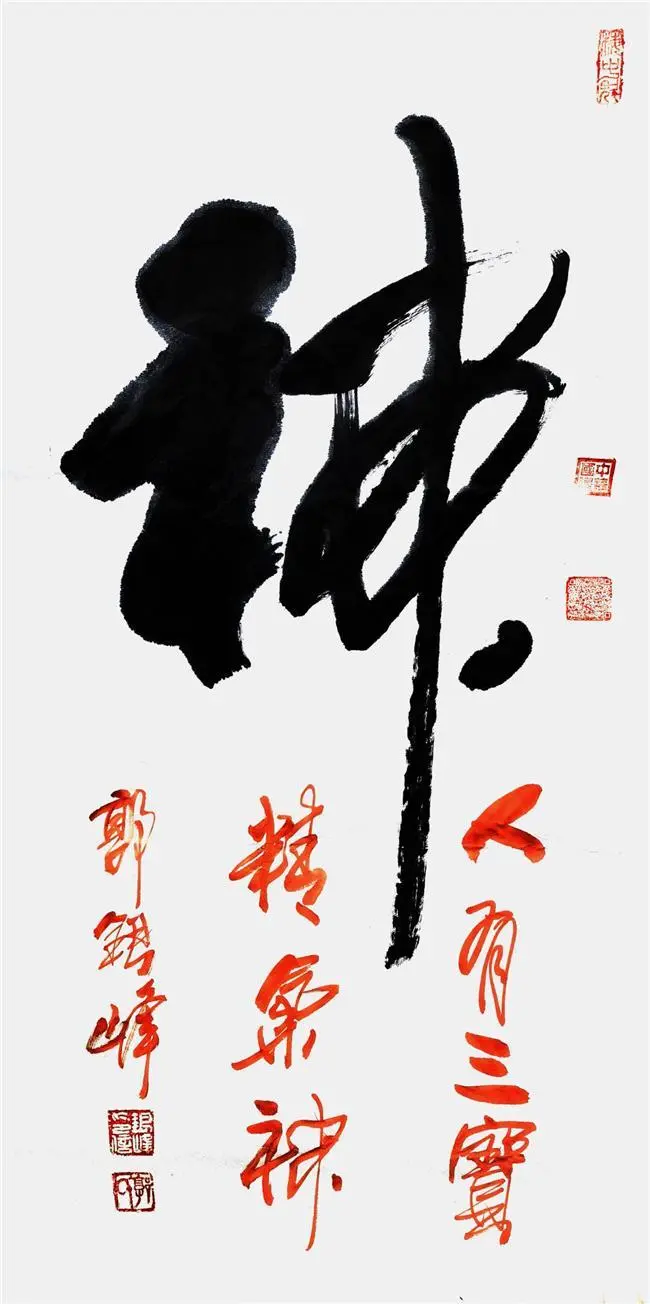 神
人有三寶
精氣神
郭峰